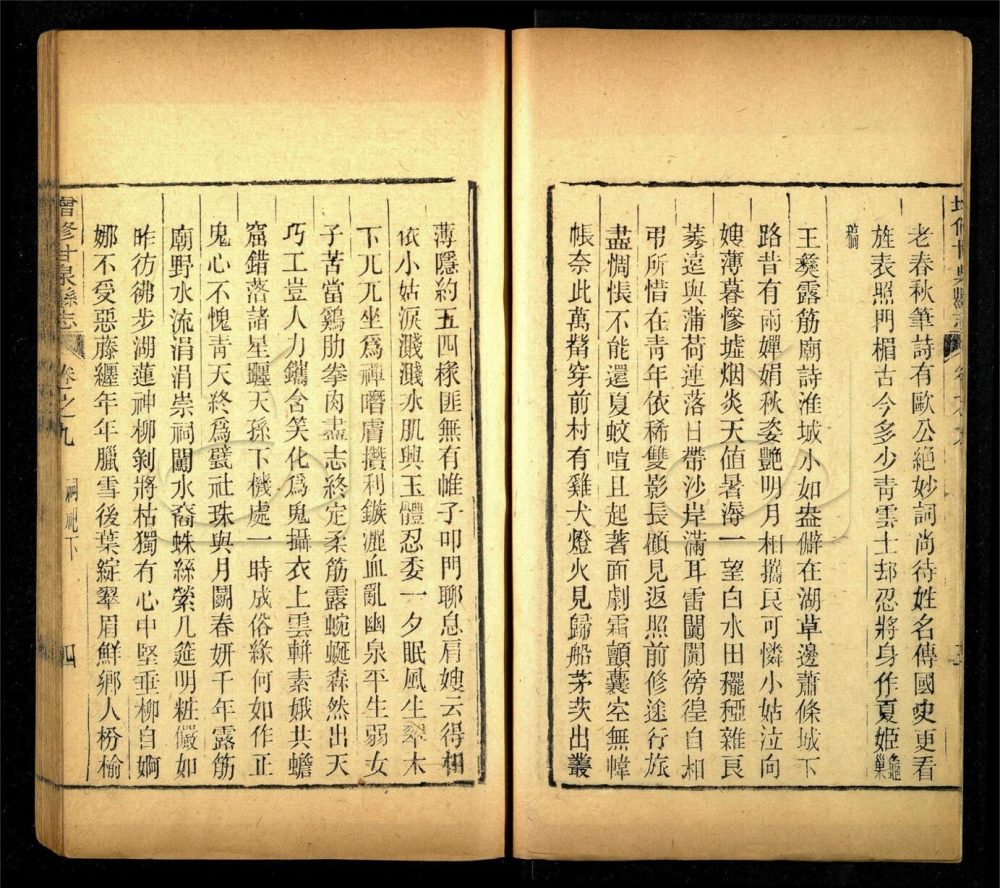 增修甘泉縣志
老春秋筆詩有歐公絶妙詞尚待姓名傳國史更看
旌表照門楣古今多少青雲士却忍將身作夏姬龜巢
稿
王奐露筋廟詩淮城小如盎僻在湖草邊蕭條城下
路昔有兩嬋娟秋姿艷明月相攜良可憐小姑泣向
嫂薄暮慘墟烟炎天值暑溽一望白水田穲稏雜莨
莠遠與蒲荷連落日帶沙岸滿耳雷闐闐徬徨自相
弔所惜在青年依稀雙影長傾見返照前修途行旅
盡惆悵不能還夏蚊喧且起著面劇霜顫囊空無幃
帳奈此萬觜穿前村有雞犬燈火見歸船茅茨出叢
薄隱約五四椽匪無有帷子叩門聊息肩嫂云得相
依小姑淚濺濺水肌與玉體忍委一夕眠風生翠木
下兀兀坐爲禪噆膚攢利鏃瀝血亂幽泉平生弱女
子苦當鷄肋拳肉盡志終定柔筋露蜿蜒森然出天
巧工豈人力鐫含笑化爲鬼攝衣上雲軿素娥共蟾
窟錯落諸星躔天孫下機處一時成俗緣何如作正
鬼心不愧靑天終爲甓社珠與月鬬春妍千年露筋
廟野水流涓涓崇祠闖水裔蛛絲縈几筵明粧儼如
昨彷彿步湖蓮神柳剝將枯獨有心中堅垂柳自婀
娜不受惡藤纒年年臘雪後葉綻翠眉鮮鄉人枌榆
增修甘泉縣志 卷之九 祠祀下 四